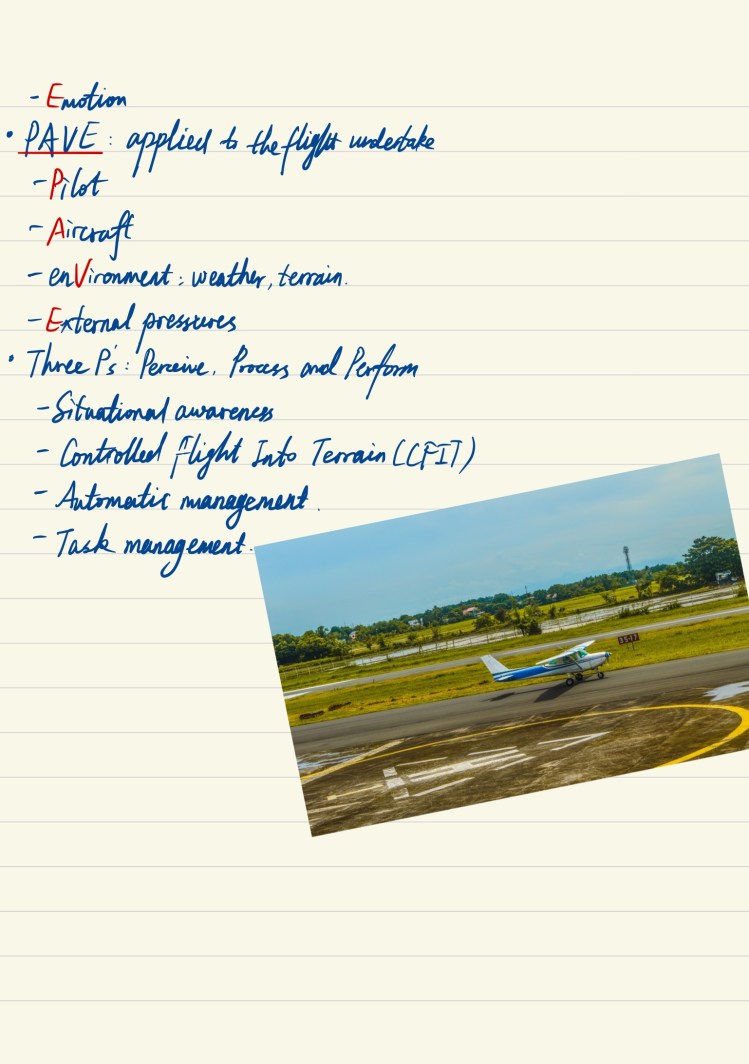 - Emotion
• PAVE : applied to the flight undertake
- Pilot
- Aircraft
- enVironment : weather, terrain.
- External pressures
• Three P's : Perceive, Process and Perform
- Situational awareness
- Controlled flight Into Terrain (CFIT)
- Automatic management.
- Task management.